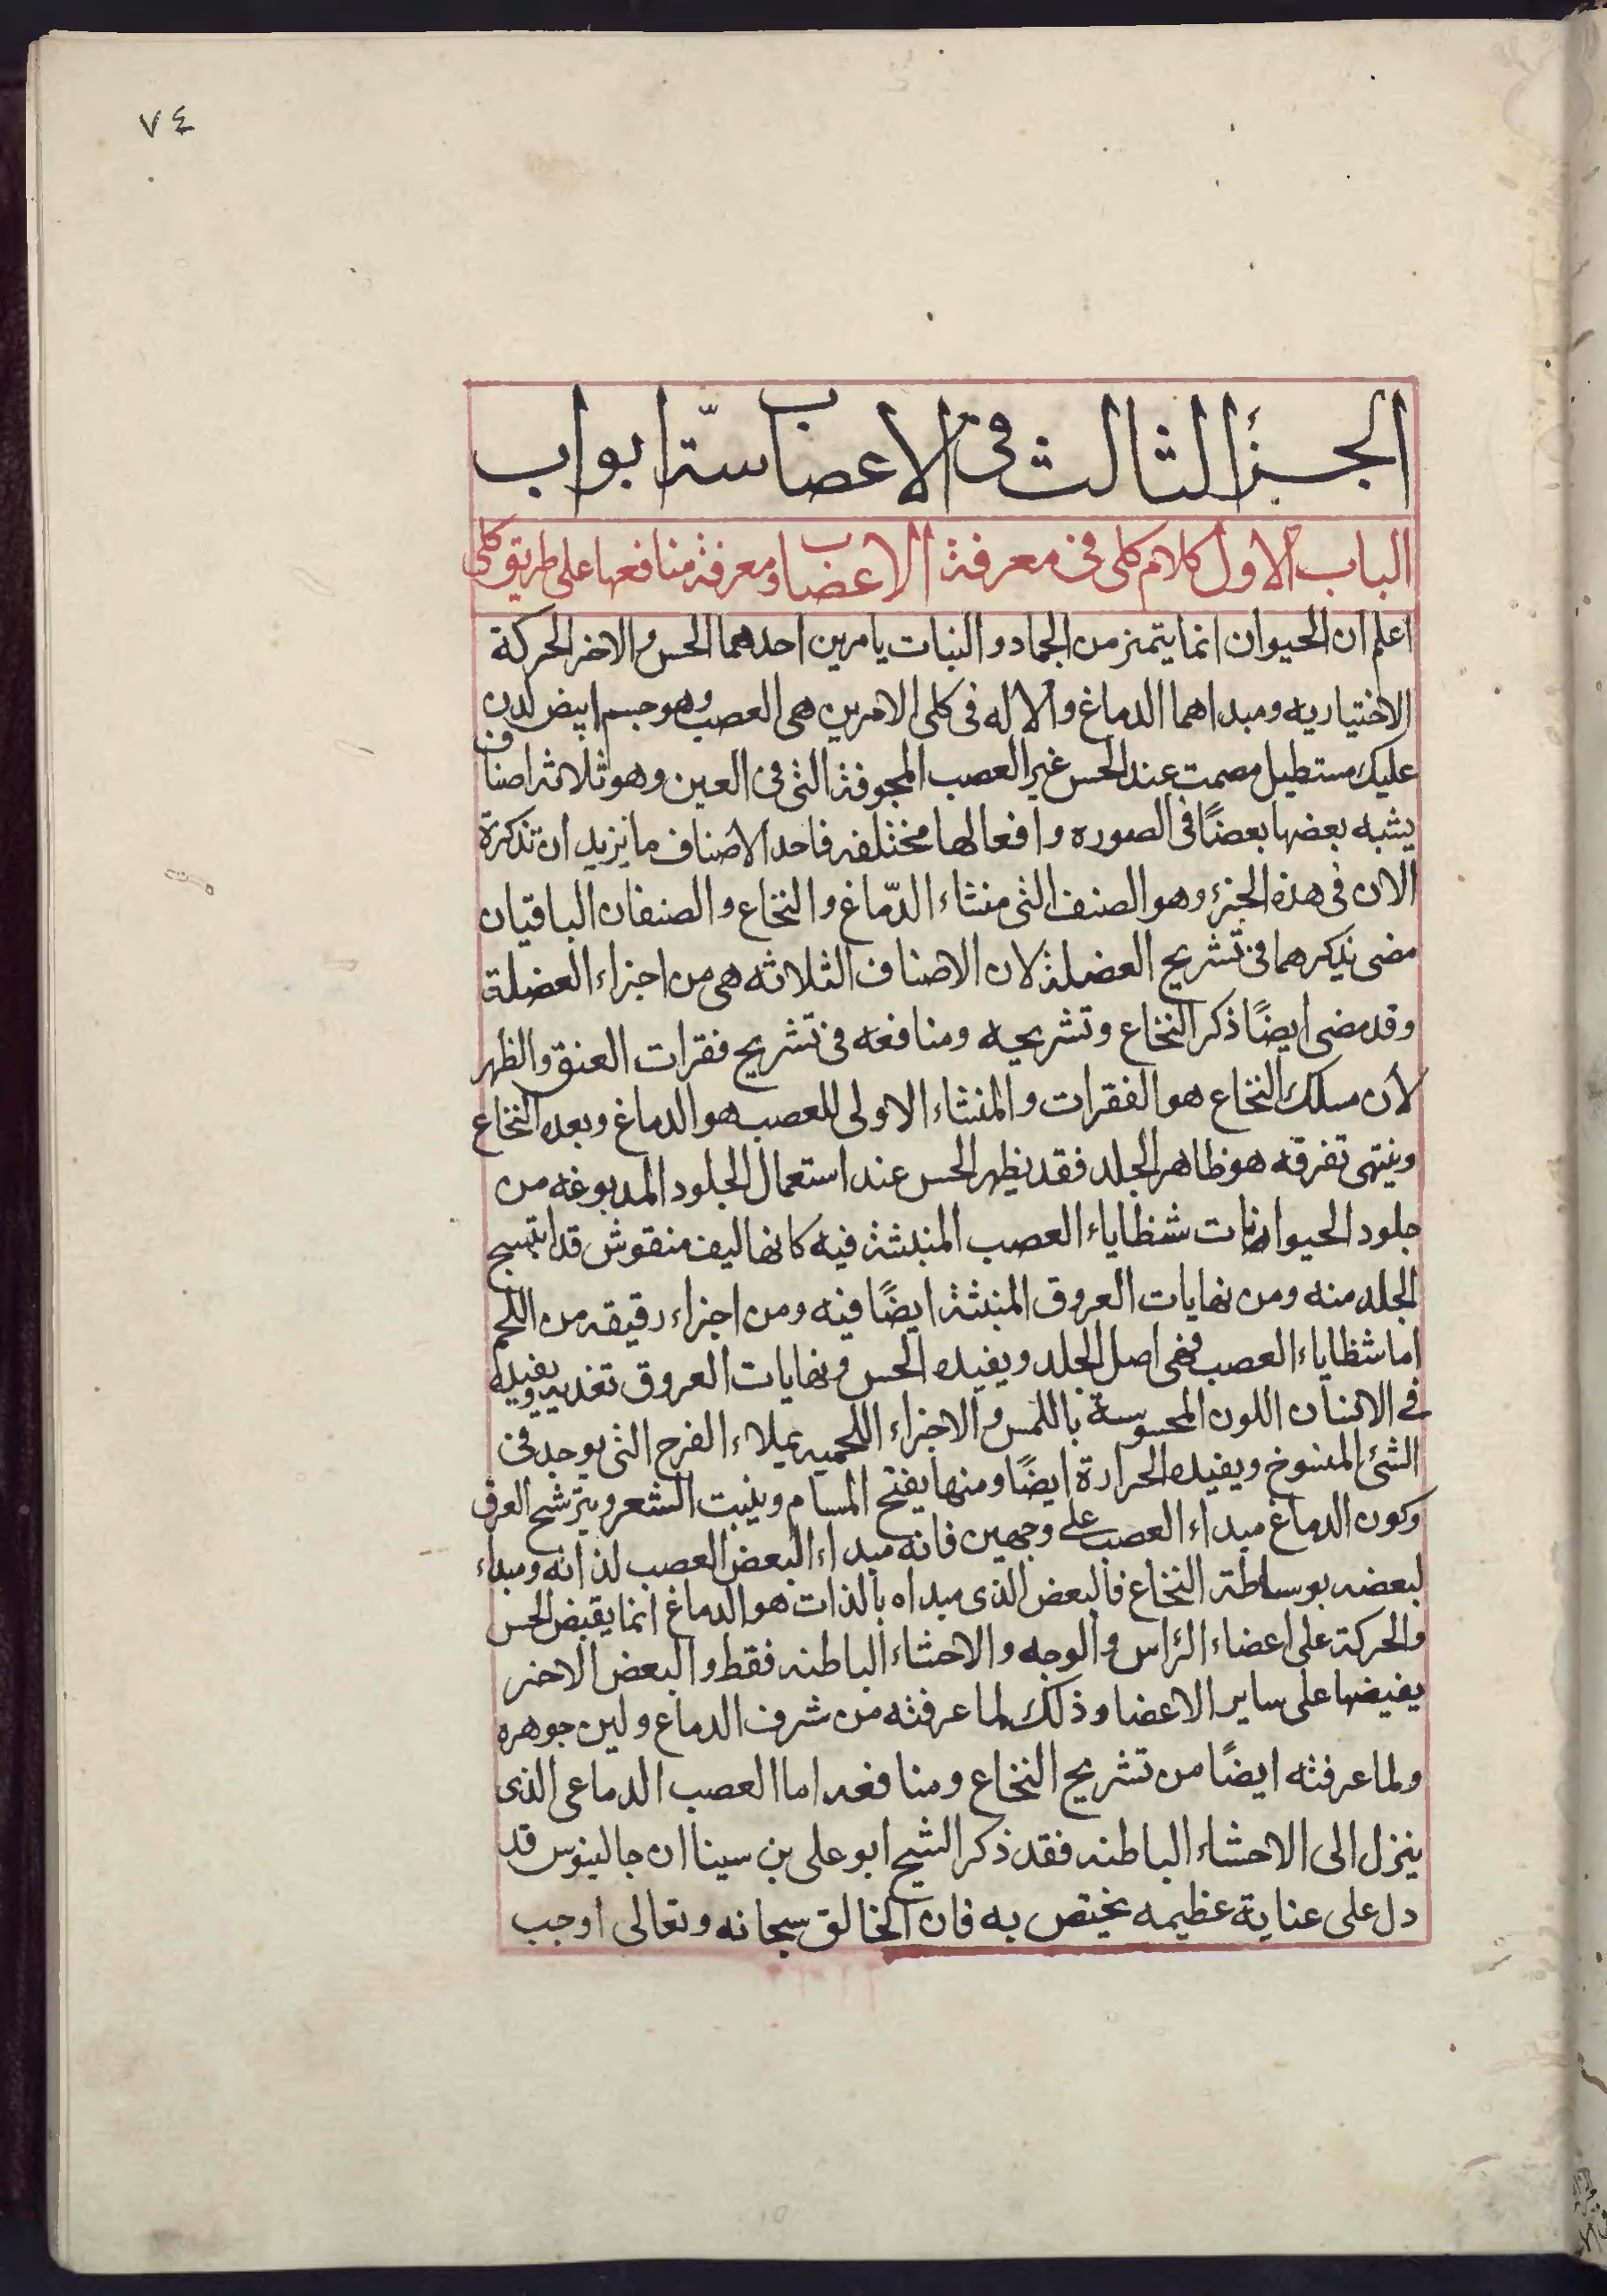 ٧٤
الجزء الثالث فى الاعصاب ستّة ابواب
الباب الاول كلام كلى فى معرفة الاعضاب ومعرفة منافعها على طريق كلى
اعلم ان الحيوان انما يتميز من الجماد و النبات بامرين احدهما الحس و الاخر الحركة
الاختياريه ومبداهما الدماغ والاله فى كلى الامرين هى العصب وهو جسم ابيض لدن
عليك مستطيل مصمت عند الحس غير العصب المجوفة التى فى العين وهو ثلاثه اصناف
يشبه بعضها بعضًا فى الصوره وافعالها مختلفه فاحد الاصناف ما نريد ان نذكرة
الان فى هذه الجزء وهو الصنف التى منشاء الدّماغ والنخاع و الصنفان الباقيان
مضى نذكرهما فى تشريح العضلة لان الاصناف الثلاثه هى من اجزاء العضلة
وقد مضى ايضًا ذكر النخاع وتشريحه ومنافعه فى تشريح فقرات العنق والظهر
لان مسلك النخاع هو الفقرات والمنشاء الاولى للعصب هو الدماغ وبعده النخاع
وينتهى تفرقه هو ظاهر الجلد فقد يظهر الحس عند استعمال الجلود المدبوغه من
جلود الحيوانات شظاياء العصب المنبثة فيه كانها ليف منقوش قد انتسج
الجلد منه ومن نهايات العروق المنبثة ايضًا فيه ومن اجزاء رقيقه من اللحم
اما شظاياء العصب فهى اصل الجلد ويفيده الحس ونهايات العروق تغذيه ويفيده
فى الانسان اللون المحسوسة باللمس والاجزاء اللحميه يملاء الفرج التى يوجد فى
الشئ المنسوخ ويفيده الحرارة ايضًا ومنها يفتح المسام وينبت الشعر ويترشح العرق
وكون الدماغ مبداء العصب على وجهين فانه مبداء البعض العصب لذاته ومبداء
لبعضه بوساطة النخاع فالبعض الذى مبداه بالذات هو الدماغ انما يقبض الحس
والحركة على اعضاء الرّاس والوجه والاحشاء الباطنه فقط والبعض الاخر
يفيضها على ساير الاعضا وذلك لما عرفته من شرف الدماع ولين جوهره
ولما عرفته ايضًا من تشريح النخاع ومنافعه اما العصب الدماعى الذى
ينزل الى الاحشاء الباطنه فقد ذكر الشيح ابو على بن سينا ان جالينوس قد
دل على عناية عظيمه يختص به فان الخالق سبحانه وتعالى اوجب